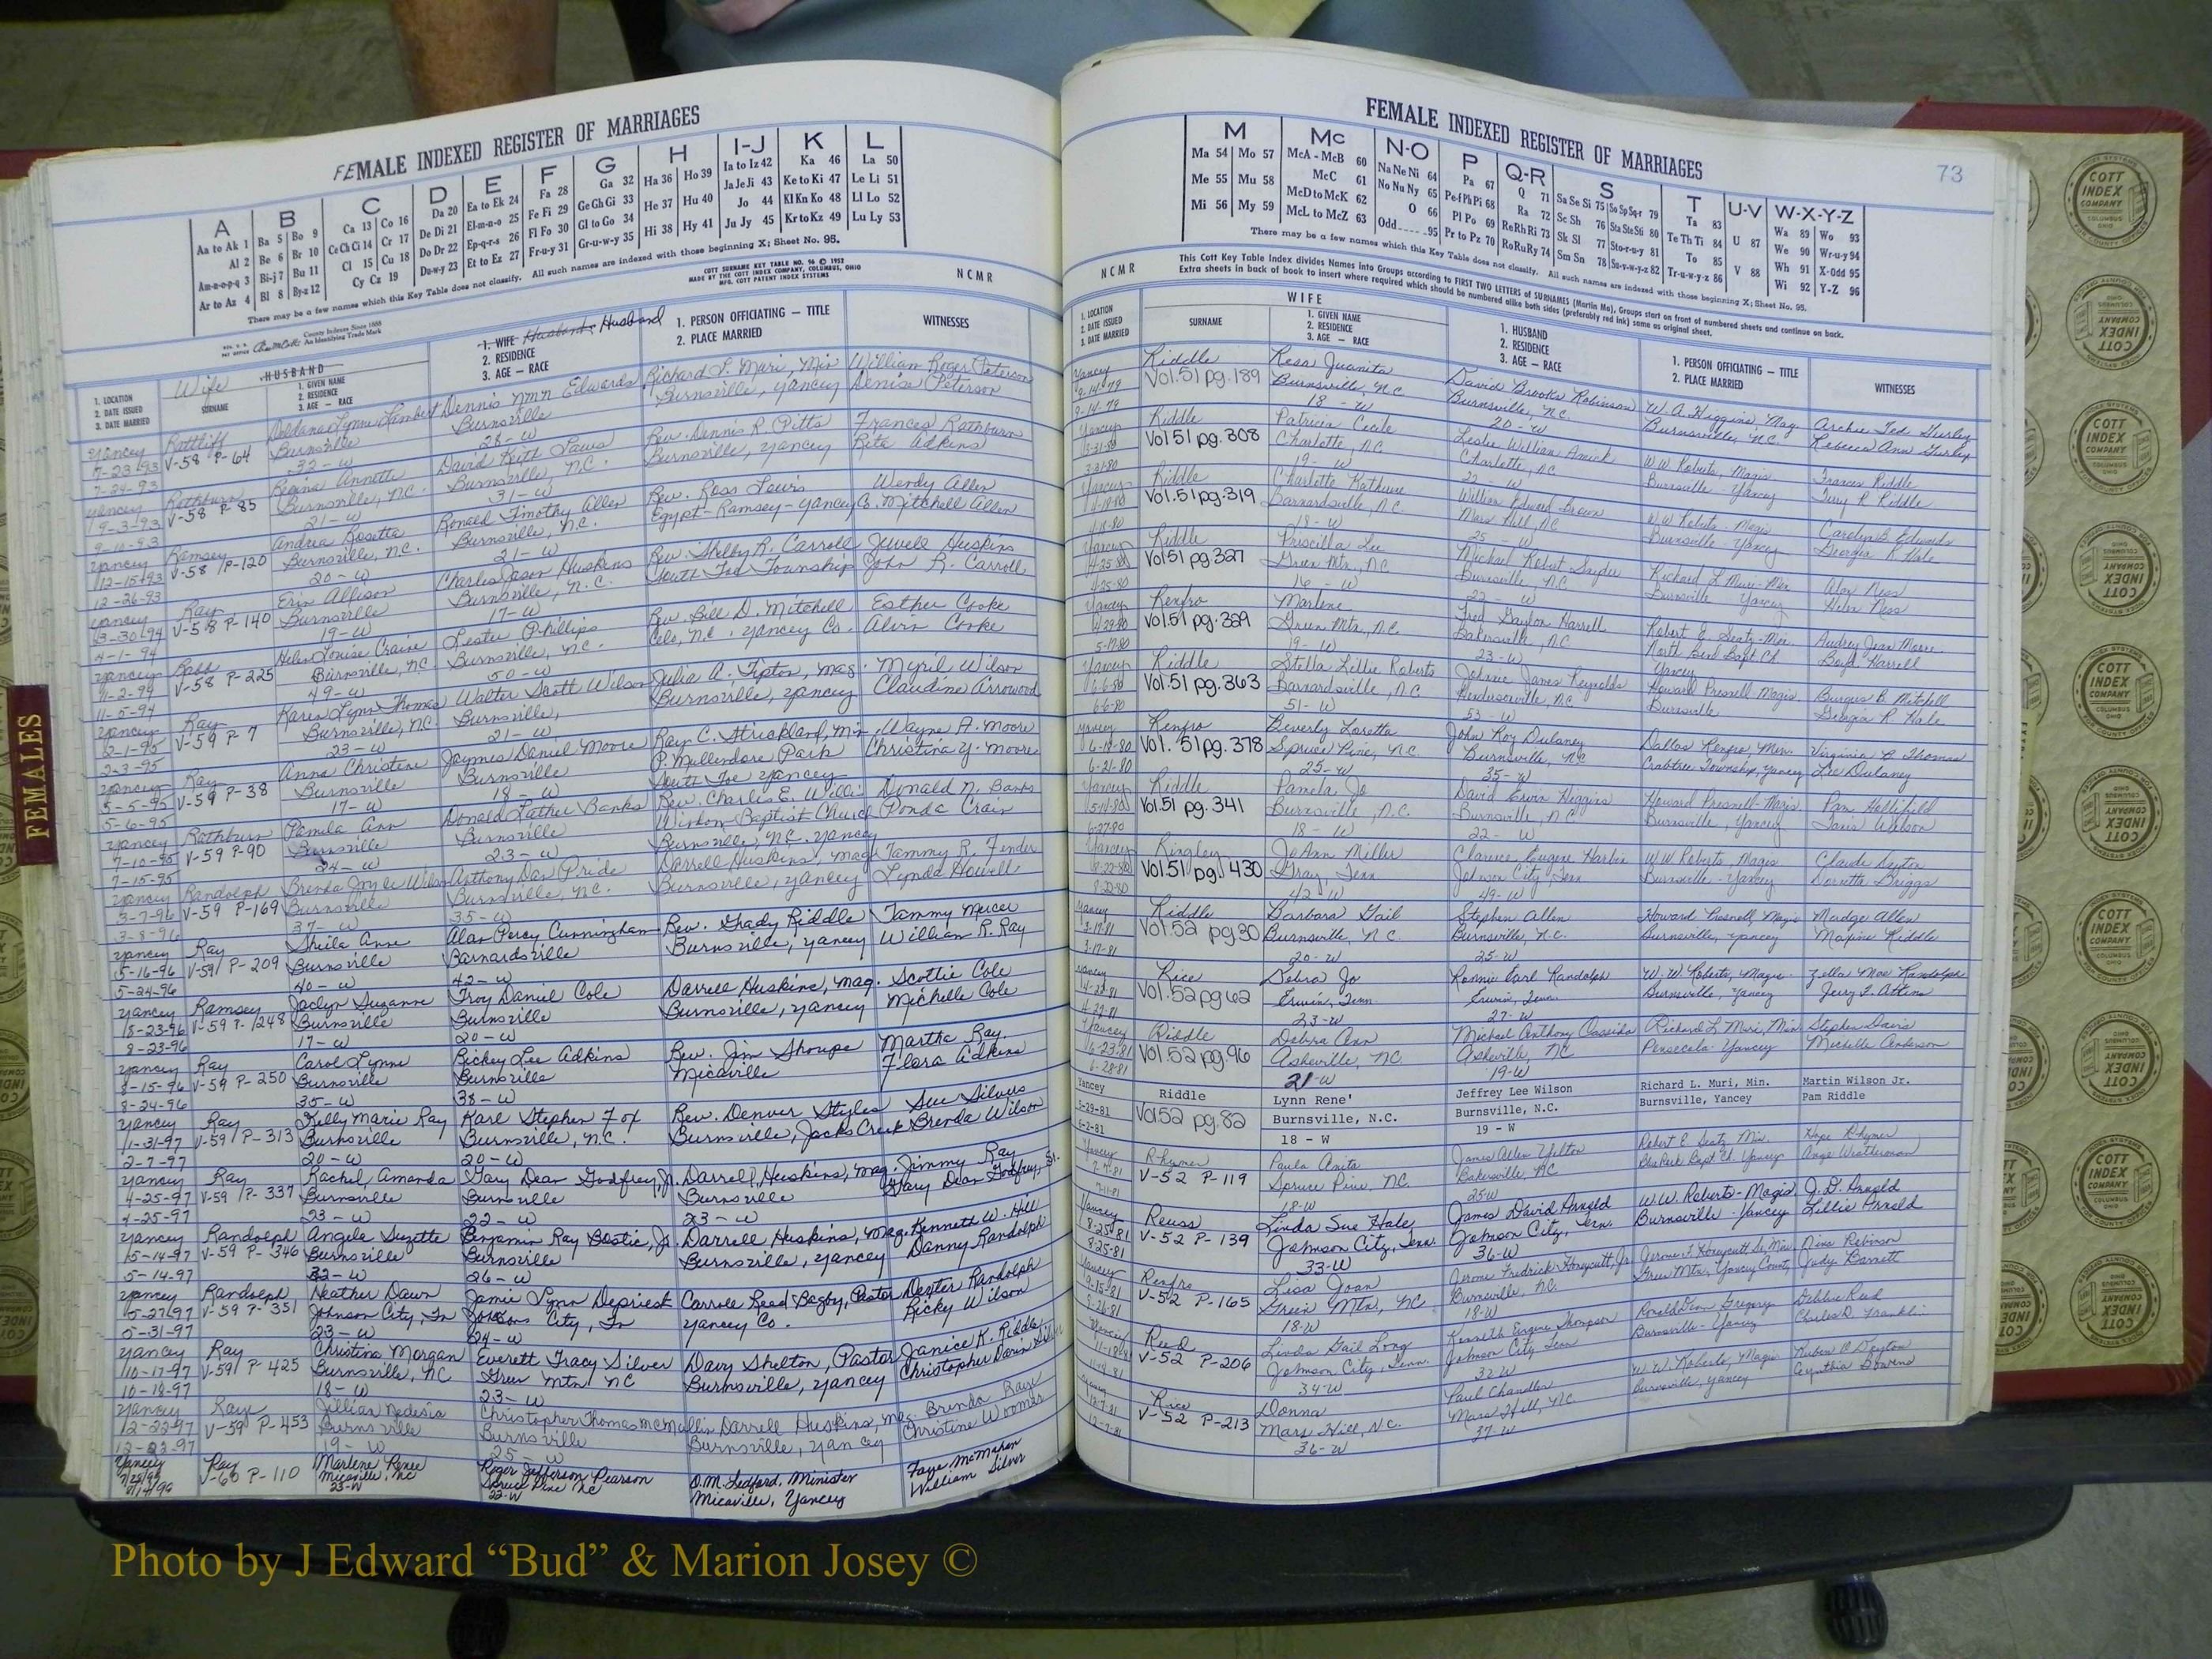 FEMALE INDEXED REGISTER OF MARRIAGES
A B C D E F G H I-J K L
Aa to Ak 1 Ba 5 Bo 9 Ca 13 Co 16 Da 20 Ea to Ek 24 Fa 28 Ga 32 Ha 36 Ho 39 Ia to Iz 42 Ka 46 La 50
Al 2 Be 6 Br 10 Ce Ch Ci 14 Cr 17 De Di 21 El-m-n-o 25 Fe Fi 29 Ge Gh Gi 33 He 37 Hu 40 Ja Je Ji 43 Ke to Ki 47 Le Li 51
Am-n-o-p-q 3 Bi-j 7 Bu 11 Cl 15 Cu 18 Do Dr 22 Ep-q-r-s 26 Fl Fo 30 Gl to Go 34 Hi 38 Hy 41 Jo 44 Kl Kn Ko 48 Ll Lo 52
Ar to Az 4 Bl 8 By-z 12 Cy Cz 19 Du-w-y 23 Et to Ez 27 Fr-u-y 31 Gr-u-w-y 35 Ju Jy 45 Kr to Kz 49 Lu Ly 53
There may be a few names which this Key Table does not classify. All such names are indexed with those beginning X; Sheet No. 95.
County Indexes Since 1888
An Identifying Trade Mark
COTT SURNAME KEY TABLE NO. 96 © 1952
MADE BY THE COTT INDEX COMPANY, COLUMBUS, OHIO
MFG. COTT PATENT INDEX SYSTEMS
NCMR
1. LOCATION
2. DATE ISSUED
3. DATE MARRIED
Wife
HUSBAND
SURNAME
1. GIVEN NAME
2. RESIDENCE
3. AGE — RACE
1. WIFE Husband Husband
2. RESIDENCE
3. AGE — RACE
1. PERSON OFFICIATING — TITLE
2. PLACE MARRIED
WITNESSES
Yancey Dennis nmn Edwards Richard L. Muri, Min William Roger Peterson
7-23-93 V-58 P-64 Burnsville Burnsville Burnsville, Yancey Denise Peterson
7-24-93 32-W 28-W
Yancey Rathburn Regina Annette David Keith Laws Rev. Dennis R Pitts Frances Rathburn
9-3-93 V-58 P-85 Burnsville, N.C. Burnsville, N.C. Burnsville, Yancey Rita Adkins
9-10-93 21-W 31-W
Yancey Ramsey Andrea Rosetta Ronald Timothy Allen Rev. Ross Lewis Wendy Allen
12-15-93 V-58 P-120 Burnsville, N.C. Burnsville, N.C. Egypt-Ramsey-Yancey C. Mitchell Allen
12-26-93 20-W 21-W
Yancey Ray Erin Allison Charles Jason Huskins Rev. Shelby R. Carroll Jewell Huskins
3-30-94 V-58 P-140 Burnsville Burnsville, N.C. South Toe Township John R. Carroll
4-1-94 19-W 17-W
Yancey Robb Helen Louise Craine Lester Phillips Rev. Bill D. Mitchell Esther Cooke
11-2-94 V-58 P-225 Burnsville, N.C. Burnsville, N.C. Celo, N.C., Yancey Co. Alvin Cooke
11-5-94 49-W 50-W
Yancey Ray Karen Lynn Thomas Walter Scott Wilson Julia A. Tipton, Mag. Myril Wilson
2-1-95 V-59 P-7 Burnsville, N.C. Burnsville, Burnsville, Yancey Claudine Arrowood
2-3-95 23-W 21-W
Yancey Ray Anna Christine Jaymes Daniel Moore Ray C. Strickland, Min Wayne A. Moore
5-5-95 V-59 P-38 Burnsville Burnsville P. Mullendore Park Christina Y. Moore
5-6-95 17-W 18-W South Toe Yancey
Yancey Rathburn Pamela Ann Donald Luther Banks Rev. Charles E. Willis Donald N. Banks
7-10-95 V-59 P-90 Burnsville Burnsville Windom Baptist Church Ponda Crain
7-15-95 24-W 23-W Burnsville, N.C. Yancey
Yancey Randolph Brenda Joyle Wilson Anthony Dan Pride Darrell Huskins, Mag Tammy R. Fender
3-7-96 V-59 P-169 Burnsville Burnsville, N.C. Burnsville, Yancey Lynda Howell
3-8-96 37-W 35-W
Yancey Ray Sheila Anne Alan Percy Cunningham Rev. Grady Riddle Tammy Mercer
5-16-96 V-59 P-209 Burnsville Barnardsville Burnsville, Yancey William R. Ray
5-24-96 40-W 42-W
Yancey Ramsey Jaclyn Suzanne Troy Daniel Cole Darrell Huskins, Mag. Scottie Cole
8-23-96 V-59 P-248 Burnsville Burnsville Burnsville, Yancey Michelle Cole
8-23-96 17-W 20-W
Yancey Ray Carol Lynne Rickey Lee Adkins Rev. Jim Shoupe Martha Ray
8-15-96 V-59 P-250 Burnsville Burnsville Micaville Flora Adkins
8-24-96 35-W 38-W
Yancey Ray Kelly Marie Ray Karl Stephen Fox Rev. Denver Styles Sue Silvers
1-31-97 V-59 P-313 Burnsville Burnsville, N.C. Burnsville, Jacks Creek Brenda Wilson
2-7-97 20-W 20-W
Yancey Ray Rachel Amanda Gary Dean Godfrey, Jr. Darrell Huskins, Mag. Jimmy Ray
4-25-97 V-59 P-337 Burnsville Burnsville Burnsville Gary Dean Godfrey, Sr.
4-25-97 23-W 22-W 23-W
Yancey Randolph Angela Suzette Benjamin Ray Bostic, Jr. Darrell Huskins, Mag. Kenneth W. Hill
5-14-97 V-59 P-346 Burnsville Burnsville Burnsville, Yancey Danny Randolph
5-14-97 32-W 26-W
Yancey Randolph Heather Dawn Jamie Lynn Depriest Carroll Reed Bagby, Pastor Dexter Randolph
5-27-97 V-59 P-351 Johnson City, Tn Johnson City, Tn Yancey Co. Ricky Wilson
5-31-97 23-W 24-W
Yancey Ray Christina Morgan Everett Tracy Silver Davy Shelton, Pastor Janice K. Riddle
10-17-97 V-59 P-425 Burnsville, NC Green Mtn. NC Burnsville, Yancey Christopher Darin Silver
10-18-97 18-W 23-W
Yancey Ray Jillian Nedesia Christopher Thomas McMullin Darrell Huskins, Mag. Brenda Ray
12-22-97 V-59 P-453 Burnsville Burnsville Burnsville, Yancey Christine Woomer
12-23-97 19-W 25-W
Yancey Ray Marlene Renee Roger Jefferson Pearson O.M. Ledford, Minister Faye McMahan
V-60 P-110 Micaville, NC Spruce Pine NC Micaville, Yancey William Silver
23-W 22-W
FEMALES
FEMALE INDEXED REGISTER OF MARRIAGES
73
M Mc N-O P Q-R S T U-V W-X-Y-Z
Ma 54 Mo 57 McA - McB 60 Na Ne Ni 64 Pa 67 Q 71 Sa Se Si 75 So Sp Sq-r 79 Ta 83 Wa 89 Wo 93
Me 55 Mu 58 McC 61 No Nu Ny 65 Pe-f Ph Pi 68 Ra 72 Sc Sh 76 Sta Ste Sti 80 Te Th Ti 84 U 87 We 90 Wr-u-y 94
Mi 56 My 59 McD to McK 62 O 66 Pl Po 69 Re Rh Ri 73 Sk Sl 77 Sto-r-u-y 81 To 85 Wh 91 X-Odd 95
McL to McZ 63 Odd 95 Pr to Pz 70 Ro Ru Ry 74 Sm Sn 78 Su-v-w-y-z 82 Tr-u-w-y-z 86 V 88 Wi 92 Y-Z 96
There may be a few names which this Key Table does not classify. All such names are indexed with those beginning X; Sheet No. 95.
This Cott Key Table Index divides Names into Groups according to FIRST TWO LETTERS of SURNAMES (Martin Ma), Groups start on front of numbered sheets and continue on back.
Extra sheets in back of book to insert where required which should be numbered alike both sides (preferably red ink) same as original sheet.
NCMR
1. LOCATION
2. DATE ISSUED
3. DATE MARRIED
WIFE
SURNAME
1. GIVEN NAME
2. RESIDENCE
3. AGE — RACE
1. HUSBAND
2. RESIDENCE
3. AGE — RACE
1. PERSON OFFICIATING — TITLE
2. PLACE MARRIED
WITNESSES
Yancey Riddle Resa Juanita David Brooks Robinson W.A. Higgins, Mag. Archie Ted Gurley
9-14-79 Vol.51 pg.189 Burnsville, N.C. Burnsville, N.C. Burnsville, N.C. Rebecca Ann Gurley
9-14-79 18-W 20-W
Yancey Riddle Patricia Leslie William Amick W.W. Roberts, Magis Frances Riddle
3-31-80 Vol 51 pg. 308 Charlotte, N.C. Charlotte, NC Burnsville-Yancey Terry R Riddle
3-31-80 19-W 22-W
Yancey Riddle Charlotte Katherine William Edward Brown W.W. Roberts-Magis Carolyn B. Edwards
4-18-80 Vol.51 pg.319 Barnardsville, N.C. Mars Hill, NC Burnsville-Yancey Georgia R Hale
4-18-80 18-W 25-W
Yancey Riddle Priscilla Lee Michael Robert Snyder Richard L Muri-Min Alan Ness
4-25-80 Vol 51 pg.327 Green Mtn., NC Burnsville, N.C. Burnsville Yancey Helen Ness
4-25-80 16-W 22-W
Yancey Renfro Marlene Fred Gaylon Harrell Robert E Seatz-Min. Audrey Jean Moore
4-29-80 Vol.51 pg.329 Green Mtn., N.C. Bakersville, NC North Bend Bapt. Ch. Boyd Harrell
5-17-80 19-W 23-W Yancey
Yancey Riddle Stella Lillie Roberts Johnnie James Reynolds Howard Presnell Magis. Burgus B. Mitchell
6-6-80 Vol.51 pg.363 Barnardsville, N.C. Hendersonville, N.C. Burnsville Georgia R. Hale
6-6-80 51-W 53-W
Yancey Renfro Beverly Loretta John Roy Dulaney Dallas Renfro, Min. Virginia C Thomas
6-19-80 Vol. 51 pg. 378 Spruce Pine, N.C. Burnsville, NC Crabtree Township, Yancey Lee Dulaney
6-21-80 25-W 35-W
Yancey Riddle Pamela Jo David Ervin Higgins Howard Presnell-Magis Pam Hollifield
Vol.51 pg. 341 Burnsville, N.C. Burnsville, N.C. Burnsville, Yancey Janis Wilson
6-27-80 18-W 22-W
Yancey Ringley JoAnn Miller Clarence Eugene Harbin W.W. Roberts, Magis Claude Peyton
8-22-80 Vol.51 pg. 430 Gray, Tenn Johnson City, Tenn Burnsville-Yancey Doretta Briggs
8-22-80 42-W 49-W
Yancey Riddle Barbara Gail Stephen Allen Howard Presnell, Magis Madge Allen
3-17-81 Vol.52 pg 30 Burnsville, N.C. Burnsville, N.C. Burnsville, Yancey Maxine Riddle
3-17-81 20-W 25-W
Yancey Rice Debra Jo Ronnie Carl Randolph W.W. Roberts, Magis. Zella Mae Randolph
4-29-81 Vol.52 pg 62 Erwin, Tenn Erwin, Tenn. Burnsville, Yancey Jerry F. Atkins
4-29-81 23-W 27-W
Yancey Riddle Debra Ann Michael Anthony Richard L Muri, Min Stephen Davis
6-23-81 Vol 52 pg.96 Asheville, NC. Asheville, NC Pensacola-Yancey Michelle Anderson
6-28-81 21-W 19-W
Yancey Riddle Lynn Rene' Jeffrey Lee Wilson Richard L. Muri, Min. Martin Wilson Jr.
5-29-81 Vol 52 pg.82 Burnsville, N.C. Burnsville, N.C. Burnsville, Yancey Pam Riddle
6-2-81 18 - W 19 - W
Yancey Rhymer Paula Anita James Allen Yelton Robert E Seatz Min. Hope Rhymer
V-52 P-119 Spruce Pine, NC Bakersville, NC Bapt. Ch. Yancey Ange Weatherman
7-11-81 18-W 25-W
Yancey Reuss Linda Sue Hale James David Arnold W.W. Roberts-Magis. J.D. Arnold
8-25-81 V-52 P-139 Johnson City, Tenn. Johnson City, Tenn. Burnsville-Yancey Lillie Arnold
8-25-81 33-W 36-W
Yancey Renfro Lisa Joan Jerome Fredrick Honeycutt, Jr Jerome F. Honeycutt Sr., Min Nina Robinson
9-15-81 V-52 P-165 Green Mtn, NC Burnsville, NC. Green Mtn., Yancey County Judy Barnett
18-W 18-W
Yancey Reed Linda Gail Long Kenneth Eugene Thompson Ronald Dean Gregory Debbie Reed
11-18-81 V-52 P-206 Johnson City, Tenn. Johnson City Tenn Burnsville-Yancey Charles D. Franklin
34-W 32-W
Rice Donna Paul Chandler W.W. Roberts, Magis Ruben C Deyton
12-7-81 V-52 P-213 Mars Hill, N.C. Mars Hill, N.C. Burnsville, Yancey Cynthia
12-7-81 36-W 37-W
COTT INDEX COMPANY
COLUMBUS OHIO
Photo by J Edward “Bud” & Marion Josey ©